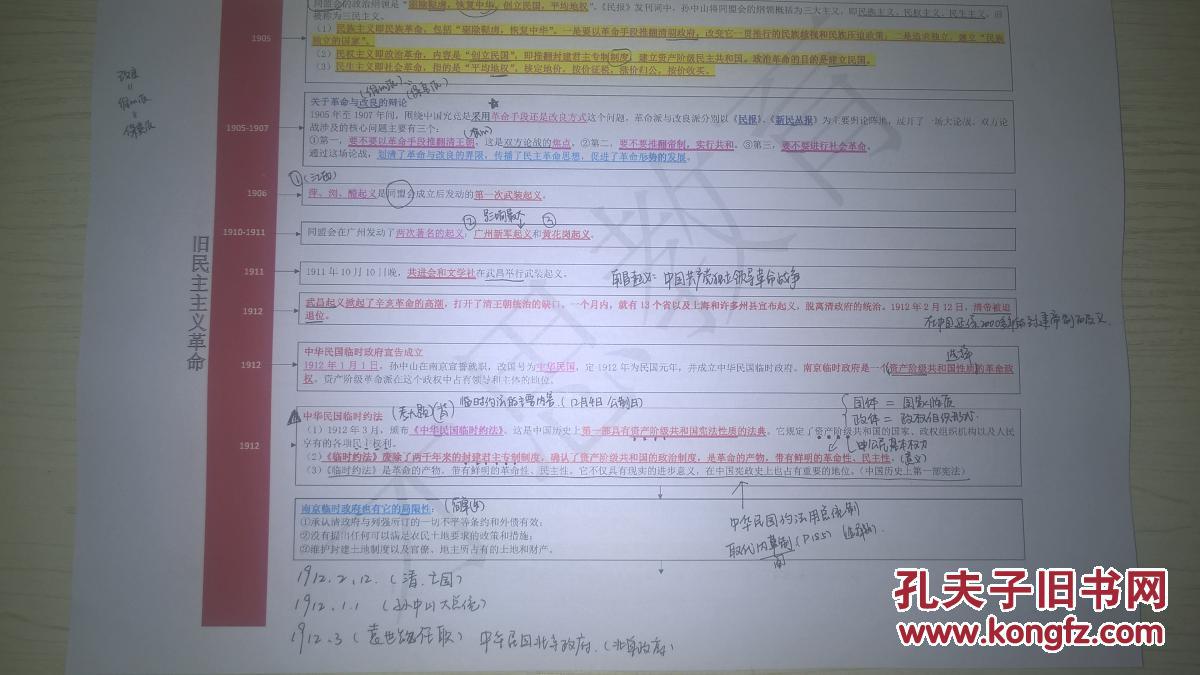 同盟会的政治纲领是“驱除鞑虏，恢复中华，创立民国，平均地权”。《民报》发刊词中，孙中山将同盟会的纲领概括为三大主义，即民族主义、民权主义、民生主义，后
被称为三民主义。
1905
（1）民族主义即民族革命，包括“驱除鞑虏，恢复中华”。一是要以革命手段推翻清朝政府，改变它一贯推行的民族歧视和民族压迫政策；二是追求独立，建立“民族
独立的国家”。
（2）民权主义即政治革命，内容是“创立民国”，即推翻封建君主专制制度，建立资产阶级民主共和国。政治革命的目的是建立民国。
（3）民生主义即社会革命，指的是“平均地权”，核定地价，按价征税，涨价归公，按价收买。
改良
=
维新派
=
保皇派
(维新派)
(保皇派)
关于革命与改良的辩论
1905-1907
1905 年至 1907 年间，围绕中国究竟是采用革命手段还是改良方式这个问题，革命派与改良派分别以《民报》、《新民丛报》为主要舆论阵地，展开了一场大论战。双方论
战涉及的核心问题主要有三个：
①第一，要不要以革命手段推翻清王朝，这是双方论战的焦点，②第二，要不要推翻帝制，实行共和。③第三，要不要进行社会革命。
通过这场论战，划清了革命与改良的界限，传播了民主革命思想，促进了革命形势的发展。
① (江西)
1906
萍、浏、醴起义是同盟会成立后发动的第一次武装起义。
② 影响最大 ③
1910-1911
同盟会在广州发动了两次著名的起义，广州新军起义和黄花岗起义。
1911
1911 年 10 月 10 日晚，共进会和文学社在武昌举行武装起义。
南昌起义：中国共产党独立领导革命战争
1912
武昌起义掀起了辛亥革命的高潮，打开了清王朝统治的缺口。一个月内，就有 13 个省以及上海和许多州县宣布起义，脱离清政府的统治。1912 年 2 月 12 日，清帝被迫
退位。
在中国延续2000多年的封建帝制
旧民主主义革命
中华民国临时政府宣告成立
选择
1912
1912 年 1 月 1 日，孙中山在南京宣誓就职，改国号为中华民国，定 1912 年为民国元年，并成立中华民国临时政府。南京临时政府是一个资产阶级共和国性质的革命政
权。资产阶级革命派在这个政权中占有领导和主体的地位。
中华民国临时约法
临时约法的主要内容。(12月4日 公制日)
国体 = 国家性质
政体 = 政权组织形式
1912
（1）1912 年 3 月，颁布《中华民国临时约法》，这是中国历史上第一部具有资产阶级共和国宪法性质的法典。它规定了资产阶级共和国的国家、政权组织机构以及人民
享有的各项民主权利。
（2）《临时约法》废除了两千年来的封建君主专制制度，确认了资产阶级共和国的政治制度，是革命的产物，带有鲜明的革命性、民主性。
(意义)
（3）《临时约法》是革命的产物，带有鲜明的革命性、民主性。它不仅具有现实的进步意义，在中国宪政史上也占有重要的地位。（中国历史上第一部宪法）
南京临时政府也有它的局限性：
(简单)
①承认清政府与列强所订的一切不平等条约和外债有效；
②没有提出任何可以满足农民土地要求的政策和措施；
③维护封建土地制度以及官僚、地主所占有的土地和财产。
中华民国约法用总统制
取代内阁制 (P155)
阁
1912.2.12. (清.亡国)
1912.1.1 (孙中山大总统)
1912.3 (袁世凯任职) 中华民国北京政府. (北洋政府)
孔夫子旧书网
www.kongfz.com